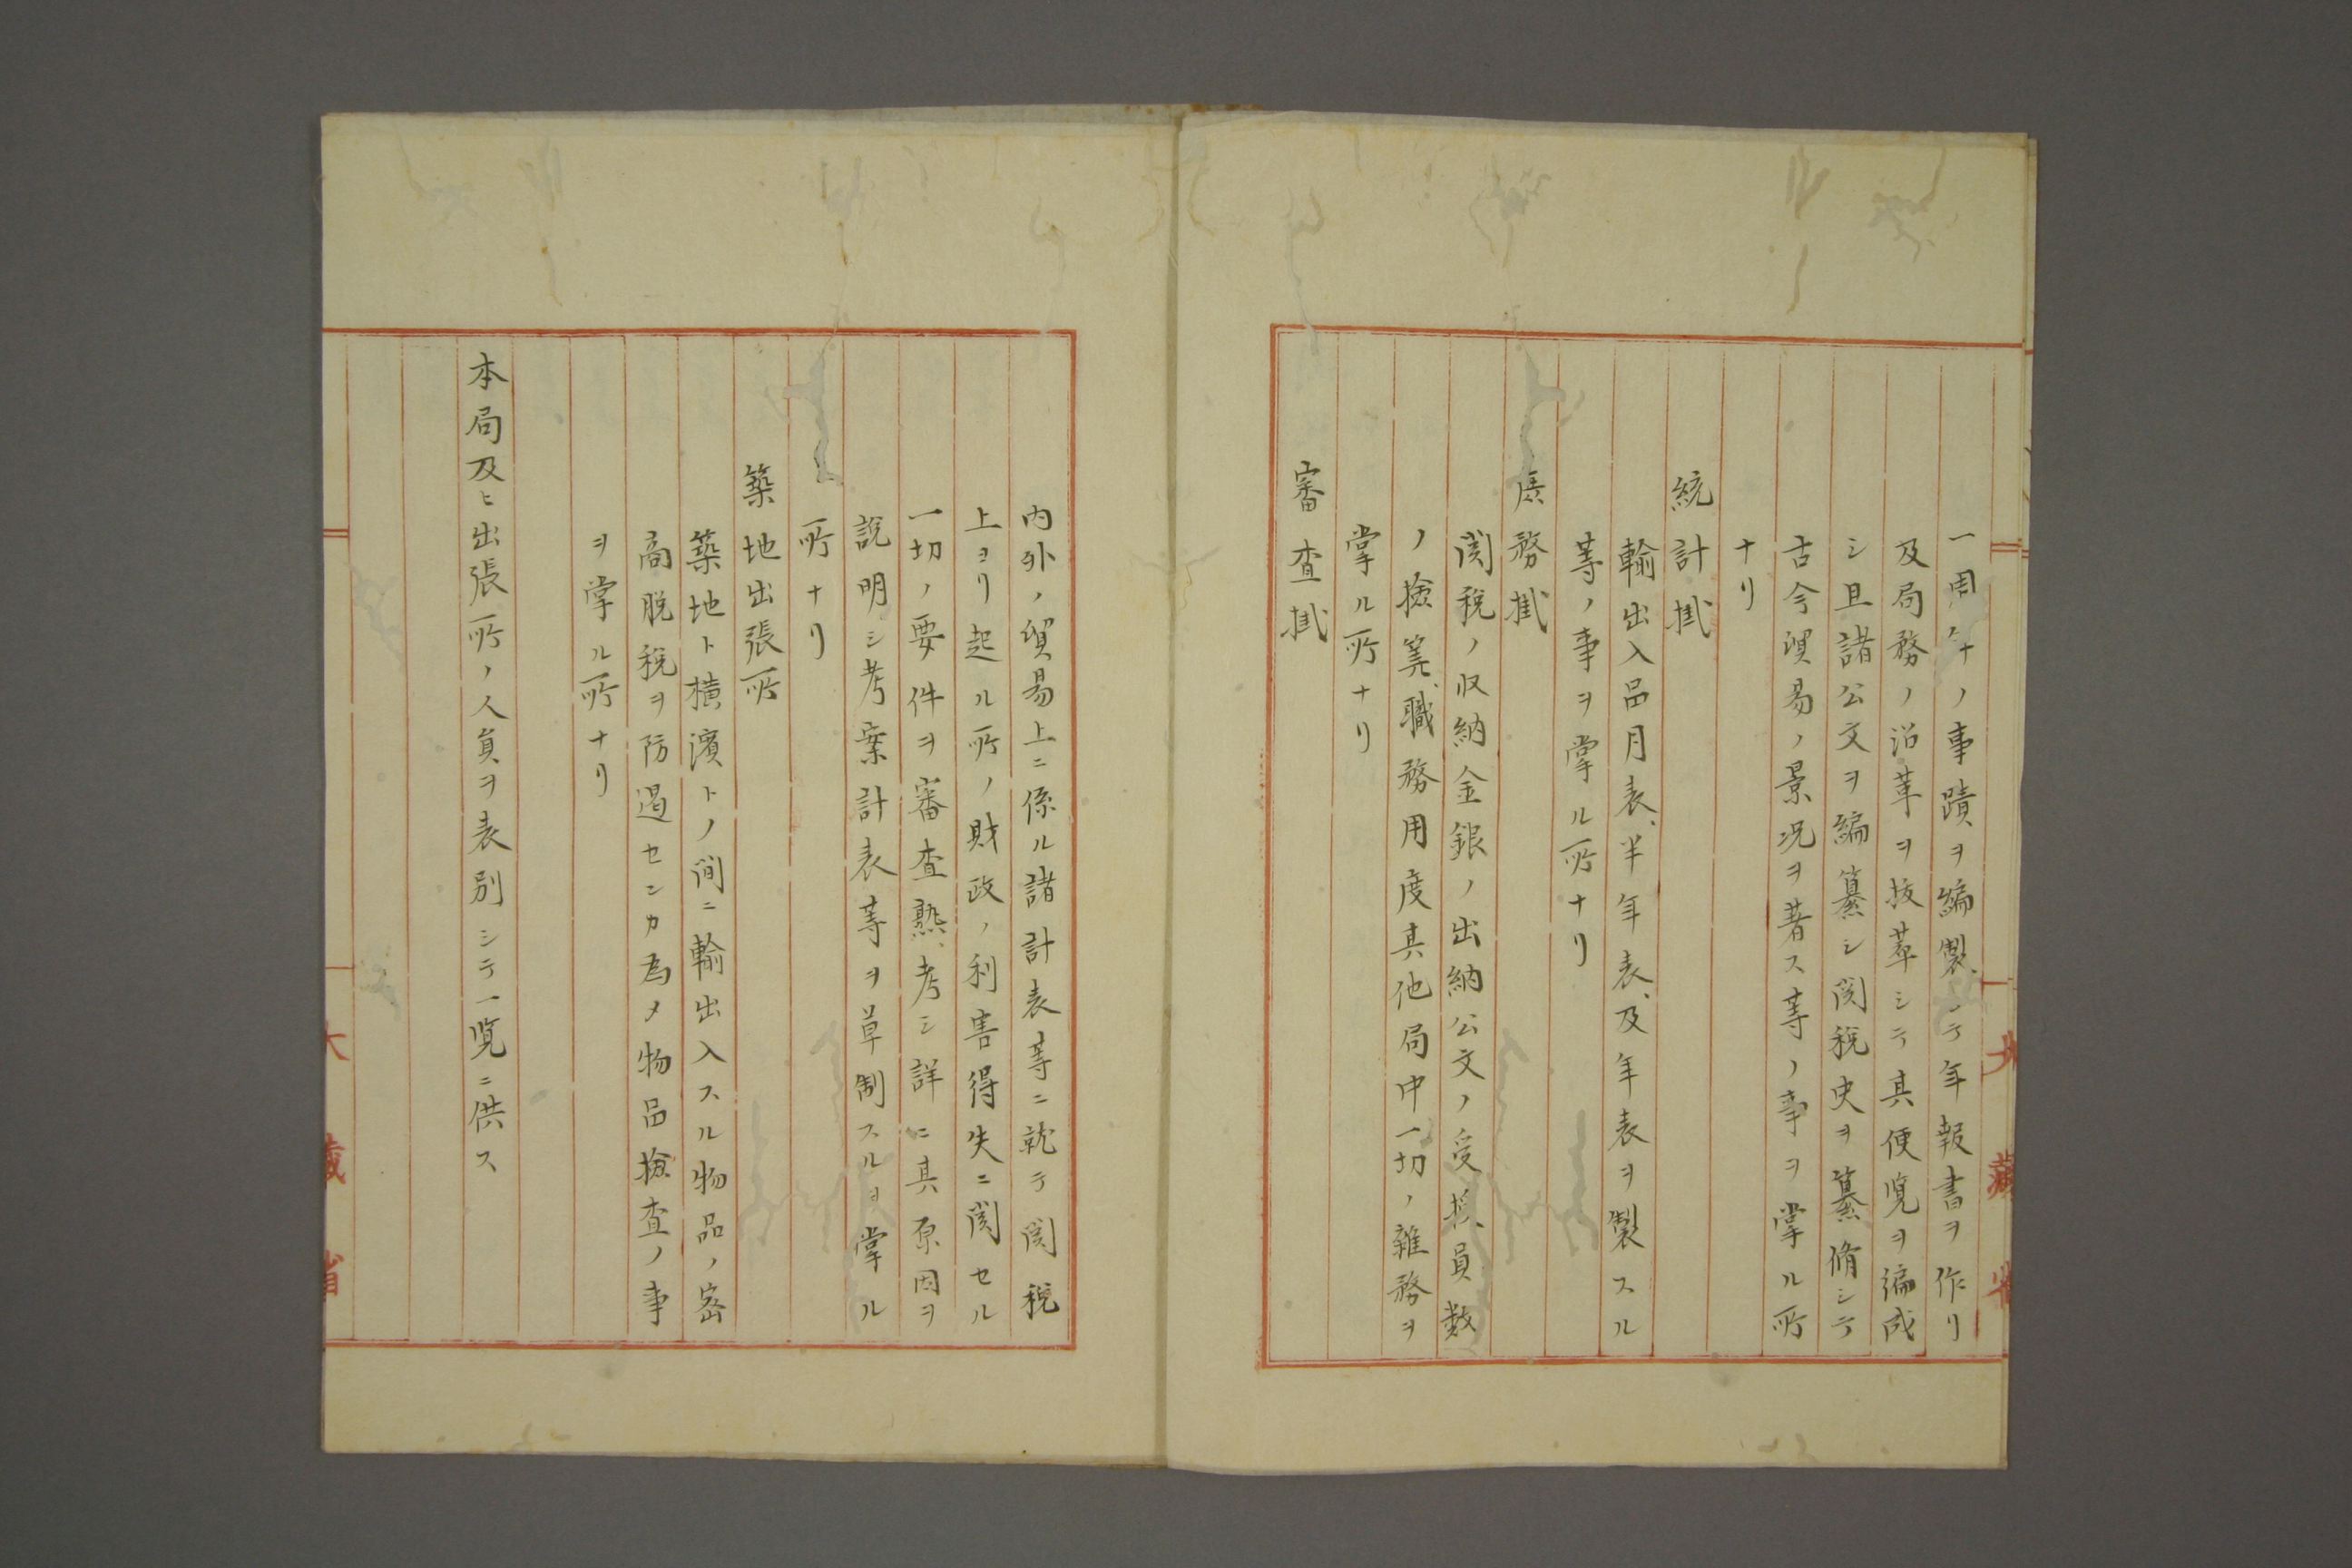 一周年ノ事蹟ヲ編製シテ年報書ヲ作リ
及局務ノ沿革ヲ抜萃シテ其便覧ヲ編成
シ且諸公文ヲ編纂シ関税史ヲ纂脩シテ
古今貿易ノ景况ヲ著ス等ノ事ヲ掌ル所
ナリ
統計掛
輸出入品月表、半年表、及年表ヲ製スル
等ノ事ヲ掌ル所ナリ
庶務掛
関税ノ収納金銀ノ出納公文ノ受授、員数
ノ検筭、職務用度其他局中一切ノ雜務ヲ
掌ル所ナリ
審査掛
内外ノ貿易上ニ係ル諸計表等ニ就テ関税
上ヨリ起ル所ノ財政ノ利害得失ニ関セル
一切ノ要件ヲ審査熟考シ詳ニ其原因ヲ
説明シ考案計表等ヲ草制スルヲ掌ル
所ナリ
築地出張所
築地ト横濱トノ間ニ輸出入スル物品ノ密
商脱税ヲ防遏センカ為メ物品検査ノ事
ヲ掌ル所ナリ
本局及ヒ出張所ノ人員ヲ表別シテ一覧ニ供ス
大藏省